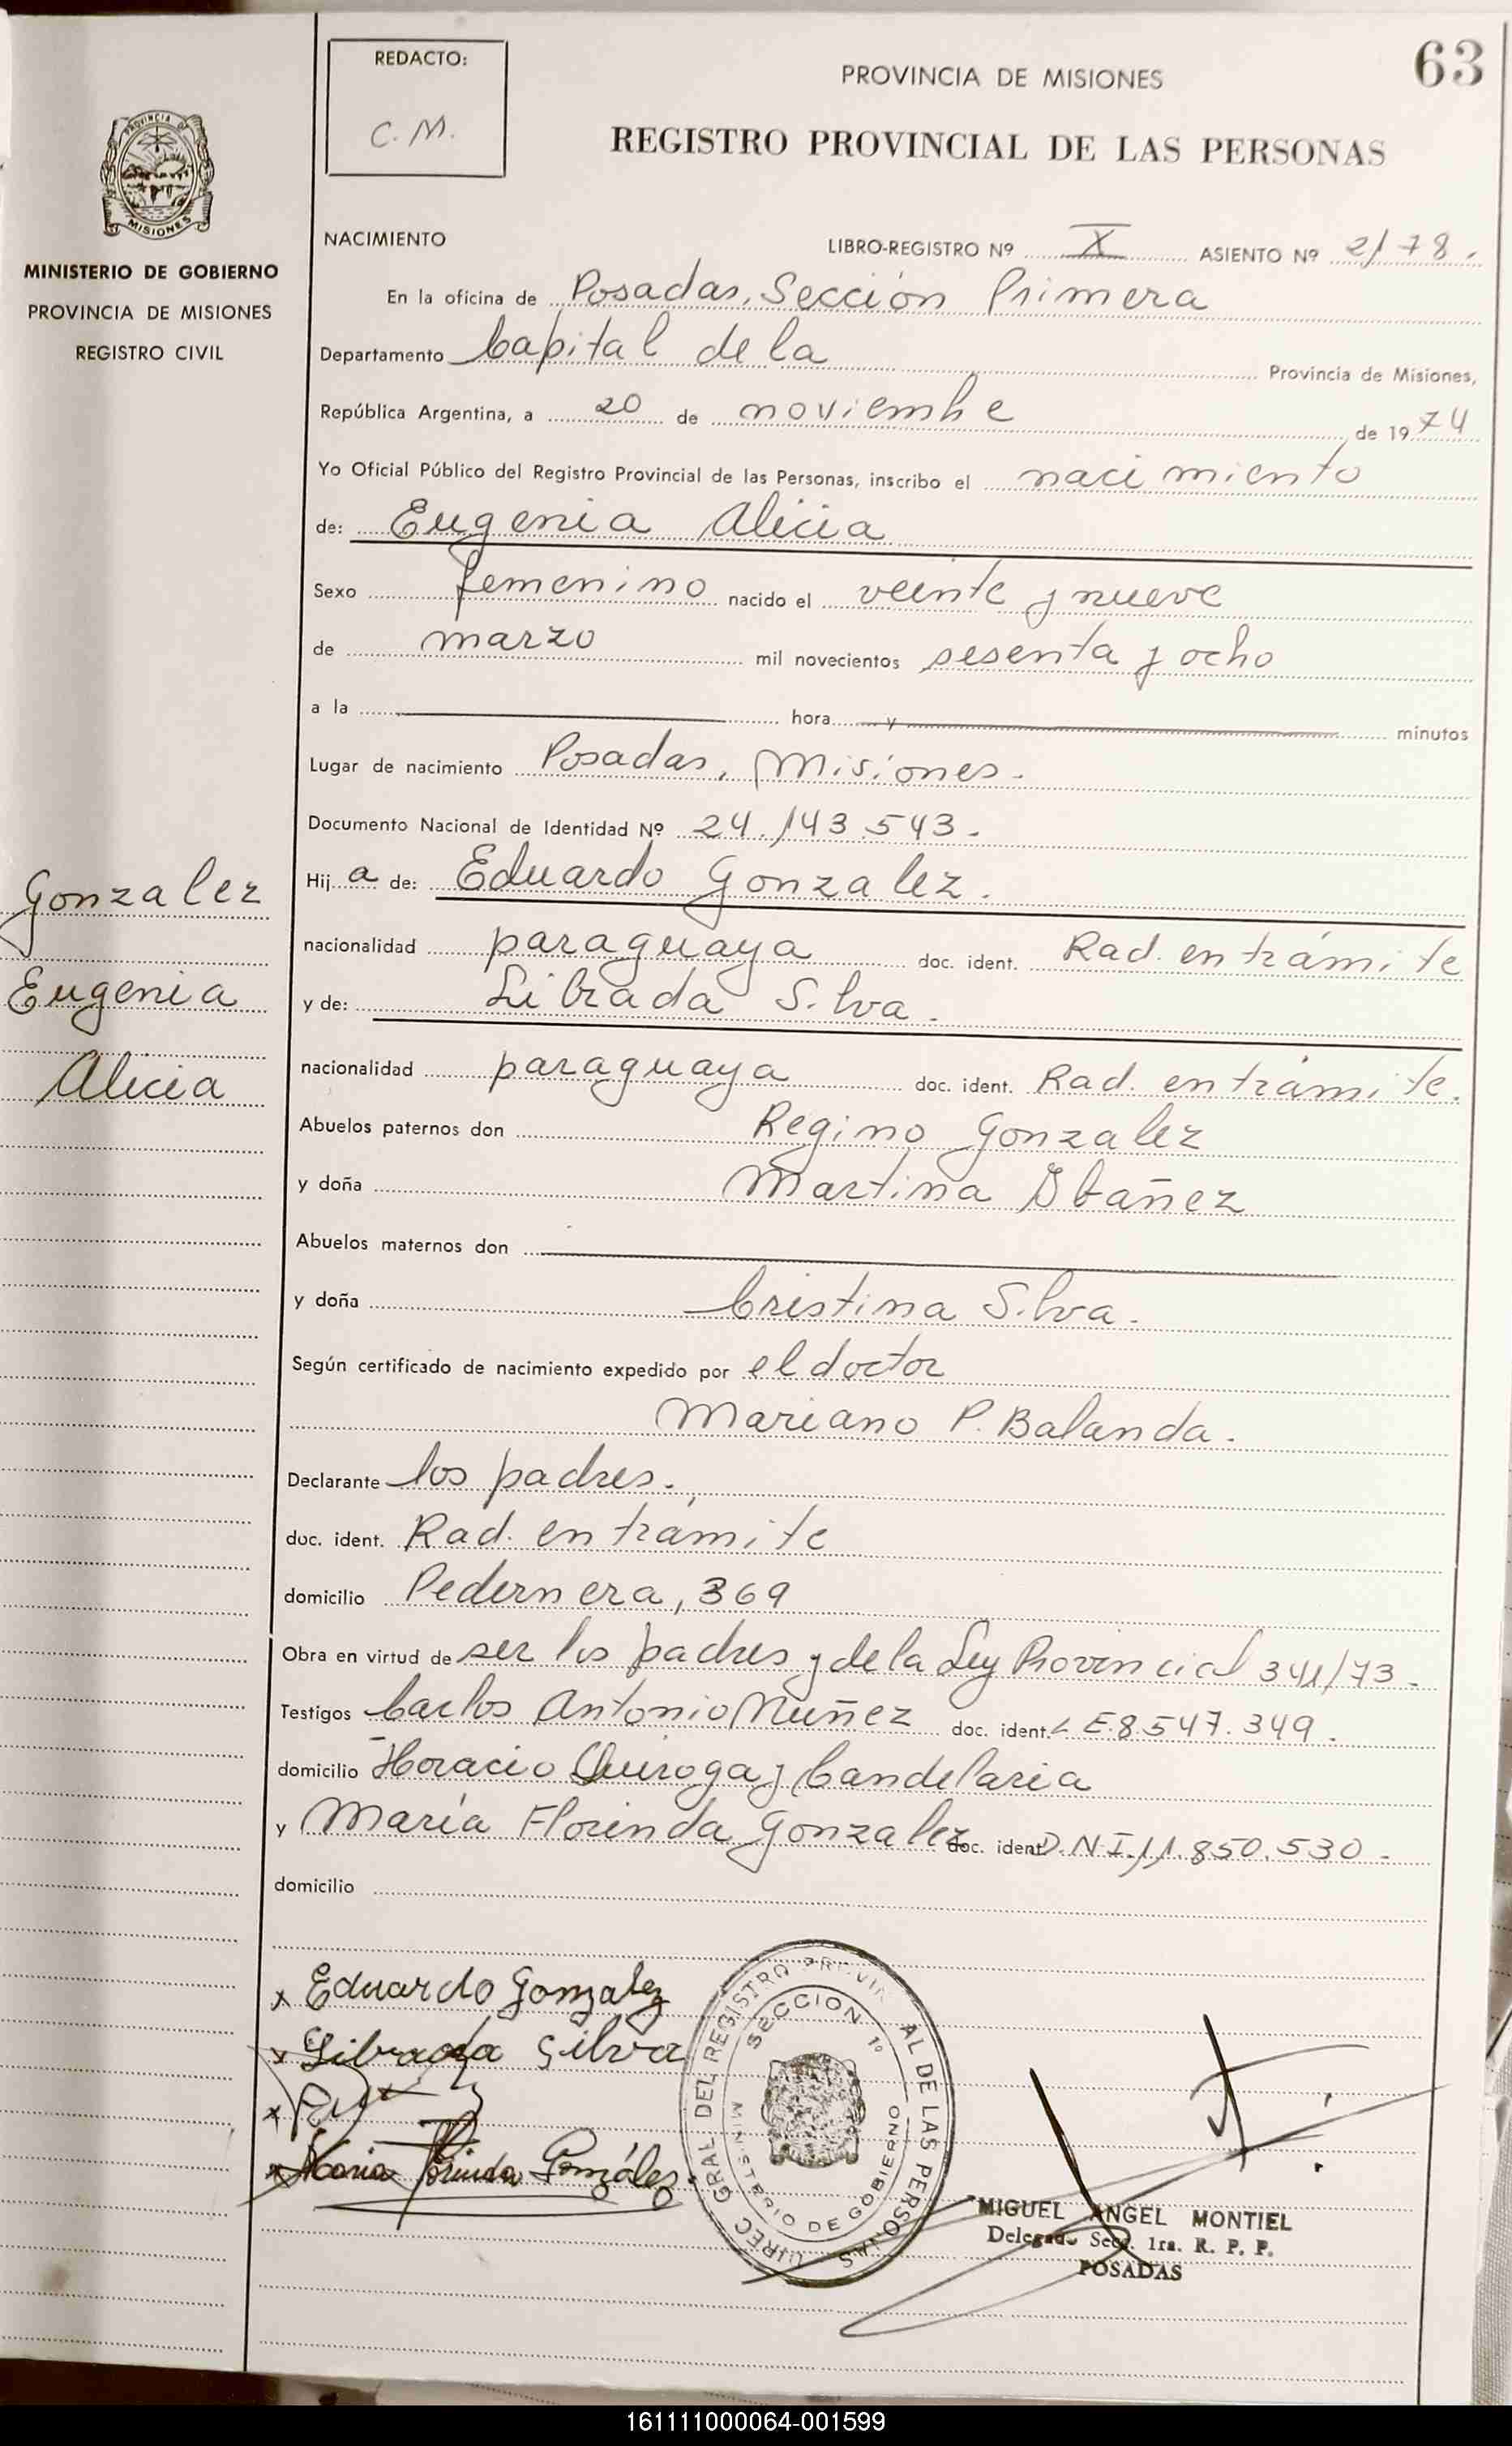 63
REDACTO:
C. M.
PROVINCIA DE MISIONES
REGISTRO PROVINCIAL DE LAS PERSONAS
PROVINCIA DE
MISIONES
MINISTERIO DE GOBIERNO
PROVINCIA DE MISIONES
REGISTRO CIVIL
NACIMIENTO
LIBRO-REGISTRO Nº X ASIENTO Nº 2178.
En la oficina de Posadas, Sección Primera
Departamento Capital de la Provincia de Misiones,
República Argentina, a 20 de noviembre de 1974
Yo Oficial Público del Registro Provincial de las Personas, inscribo el nacimiento
de: Eugenia Alicia
Sexo femenino nacido el veinte y nueve
de marzo mil novecientos sesenta y ocho
a la hora y minutos
Lugar de nacimiento Posadas, Misiones.
Documento Nacional de Identidad Nº 24.143.543.
Hija de: Eduardo Gonzalez.
nacionalidad paraguaya doc. ident. Rad. en trámite
y de: Librada Silva.
nacionalidad paraguaya doc. ident. Rad. en trámite.
Abuelos paternos don Regino Gonzalez
y doña Martina Ibañez
Abuelos maternos don
y doña Cristina Silva.
Según certificado de nacimiento expedido por el doctor
Mariano P. Balanda.
Declarante los padres.
doc. ident. Rad. en trámite
domicilio Pedernera, 369
Obra en virtud de ser los padres y de la Ley Provincial 341/73.
Testigos Carlos Antonio Nuñez doc. ident. L E. 8.547.349.
domicilio Horacio Quiroga y Candelaria
y María Florinda Gonzalez doc. ident. D.N.I. 11.850.530.
domicilio
Gonzalez
Eugenia
Alicia
x Eduardo Gonzalez
x Librada Silva
x
x Maria Florinda Gonzáles
DIREC. GRAL DEL REGISTRO PROVINCIAL DE LAS PERSONAS
SECCION 1º
MINISTERIO DE GOBIERNO
MIGUEL ANGEL MONTIEL
Delegado Secc. 1ra. R. P. P.
POSADAS
161111000064-001599